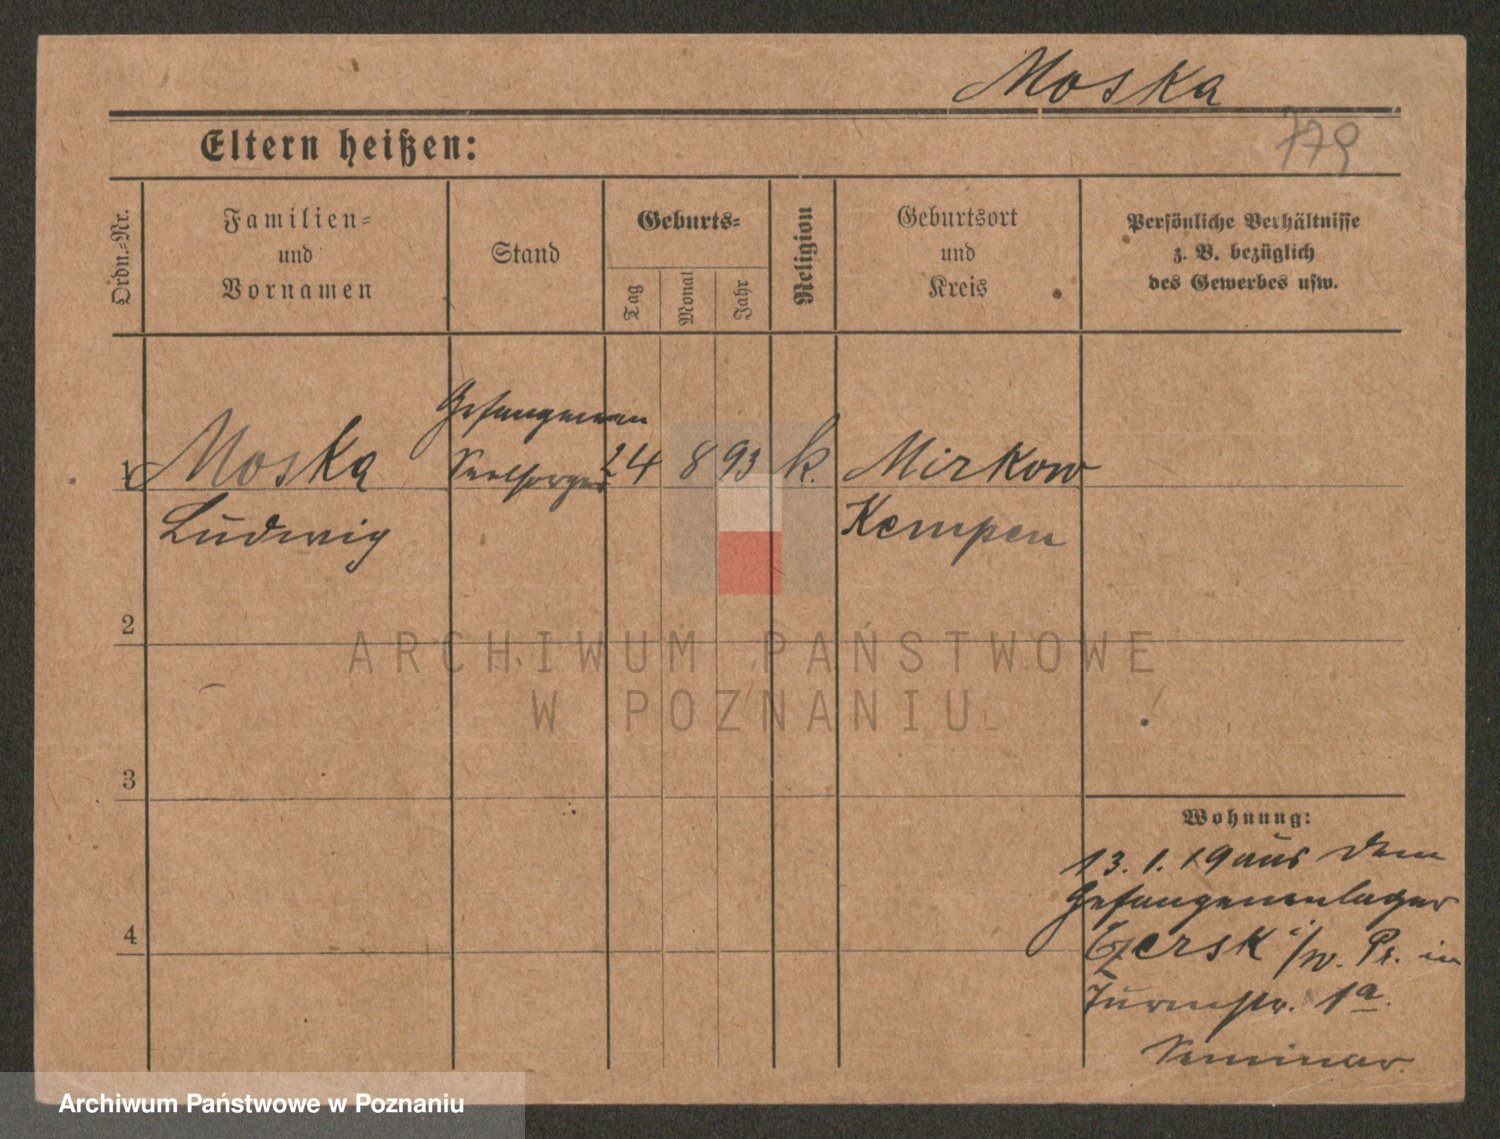 Moska
779
Eltern heißen:
Ordn.-Nr.
Familien-
und
Vornamen
Stand
Geburts-
Tag
Monat
Jahr
Religion
Geburtsort
und
Kreis
Persönliche Verhältnisse
z. B. bezüglich
des Gewerbes usw.
Gefangenen
1 Moska Seelsorger 24 8 93 k. Mirkow
Ludwig Kempen
2
3
4
Wohnung:
13. 1. 19 aus dem
Gefangenenlager
Czersk i/w. Pr. in
Turmstr. 1a.
Seminar.
ARCHIWUM PAŃSTWOWE
W POZNANIU
Archiwum Państwowe w Poznaniu